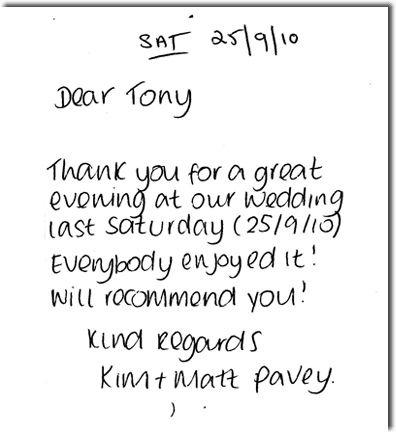 SAT 25/9/10
Dear Tony
Thank you for a great
evening at our wedding
last Saturday (25/9/10)
Everybody enjoyed it!
Will recommend you!
Kind Regards
Kim + Matt Pavey.